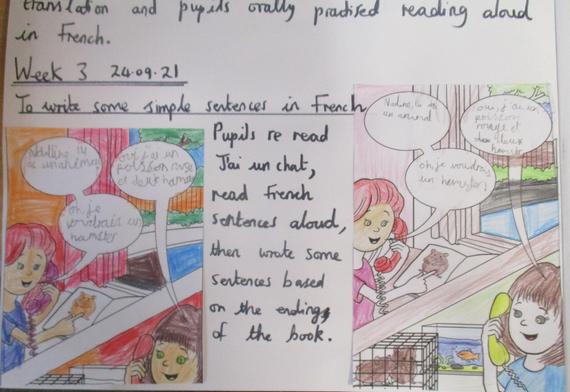 translation and pupils orally practised reading aloud
in French.
Week 3 24.09.21
To write some simple sentences in French
Pupils re read
J'ai un chat,
read French
sentences aloud,
then wrote some
sentences based
on the endings
of the book.
un animal
oui j'ai un
poisson rouge
et deux
oh je
voudrais un
hamster
Nadine, tu as
un animal
oui, j'ai un
poisson
rouge et
hamster
oh, je voudrais
un hamster